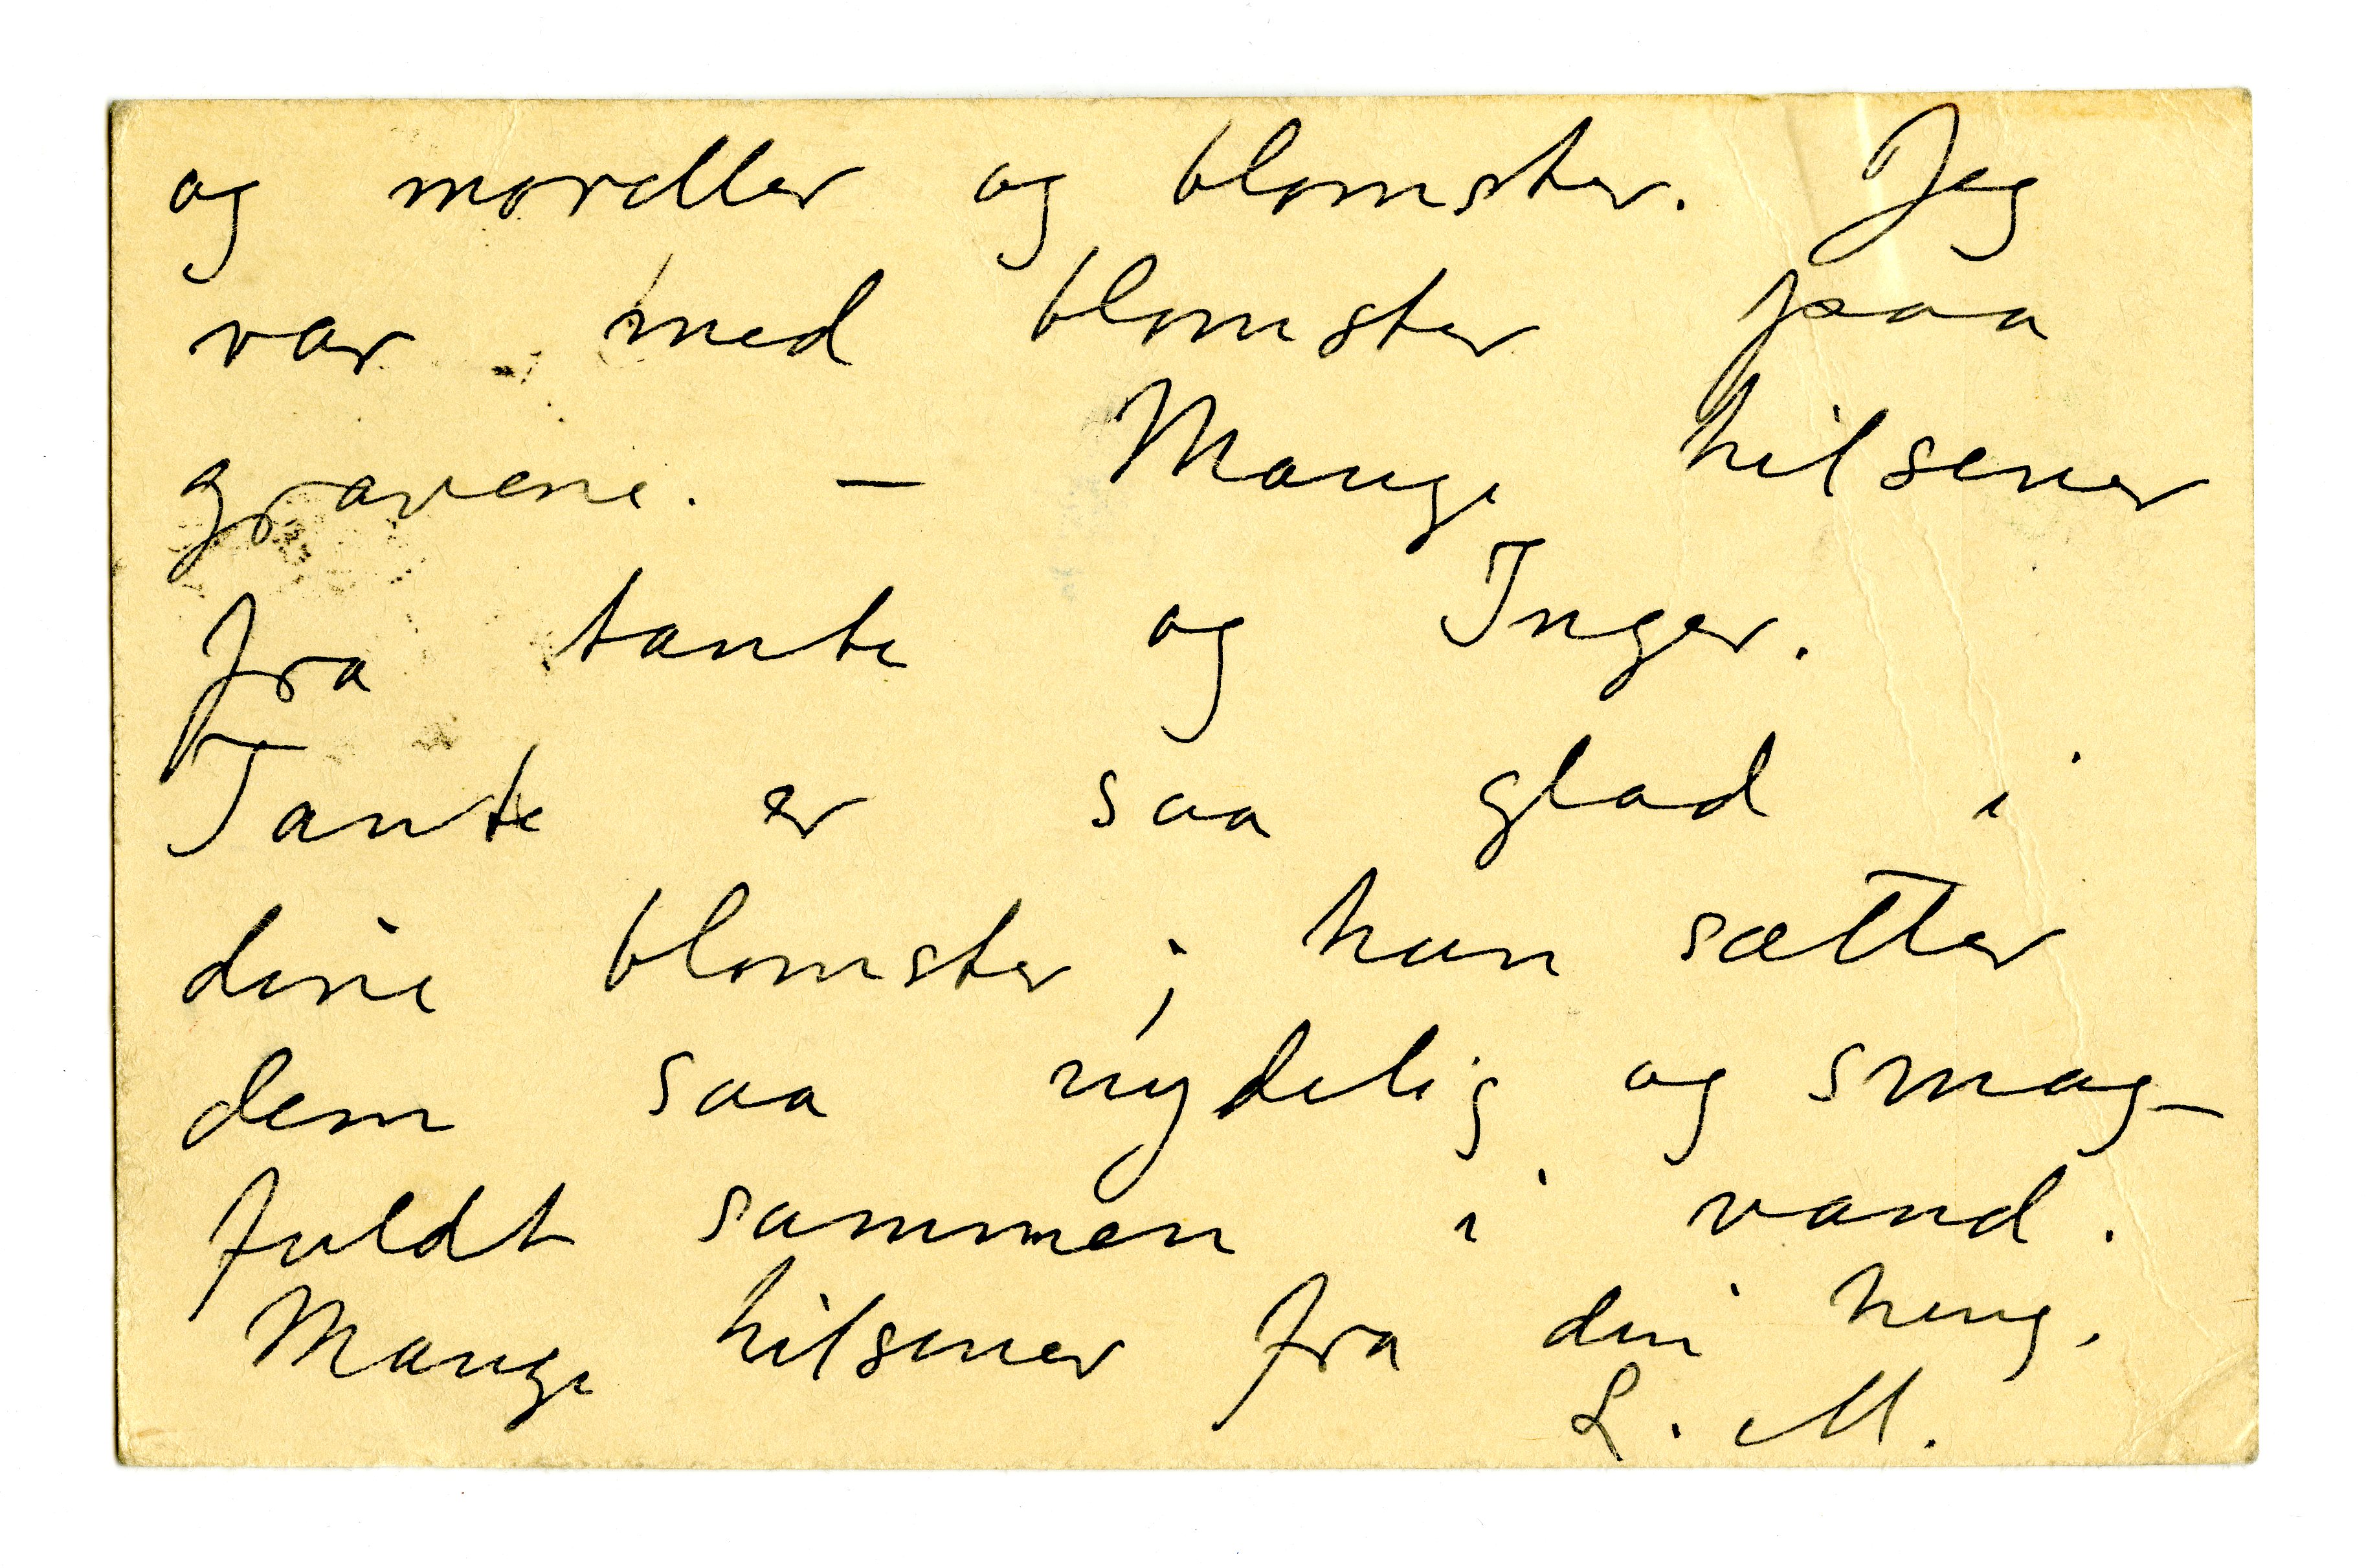 og moreller og blomster. Jeg
var med blomster paa
gravene. — Mange hilsener
fra tante og Inger.
Tante er saa glad i
dine blomster; hun sætter
dem saa nydelig og smag-
fuldt sammen i vand.
Mange hilsener fra din heng.
L. M.